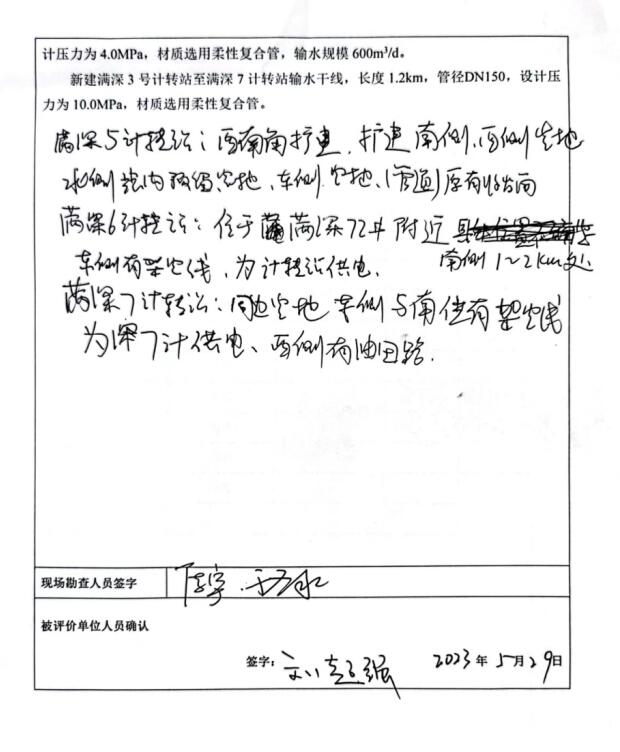 计压力为 4.0MPa，材质选用柔性复合管，输水规模 600m³/d。
新建满深 3 号计转站至满深 7 计转站输水干线，长度 1.2km，管径DN150，设计压
力为 10.0MPa，材质选用柔性复合管。
满深5计转站：西南角扩建，扩建南侧、西侧空地
北侧站内预留空地、东侧空地、(管道)原有
满深6计转站：位于满深72井附近
南侧1~2km处
东侧有架空线，为计转站供电。
满深7计转站：周边空地 东侧与南侧有架空线
为深7计供电、西侧有油田路.
现场勘查人员签字
被评价单位人员确认
签字：刘超强 2023年5月29日